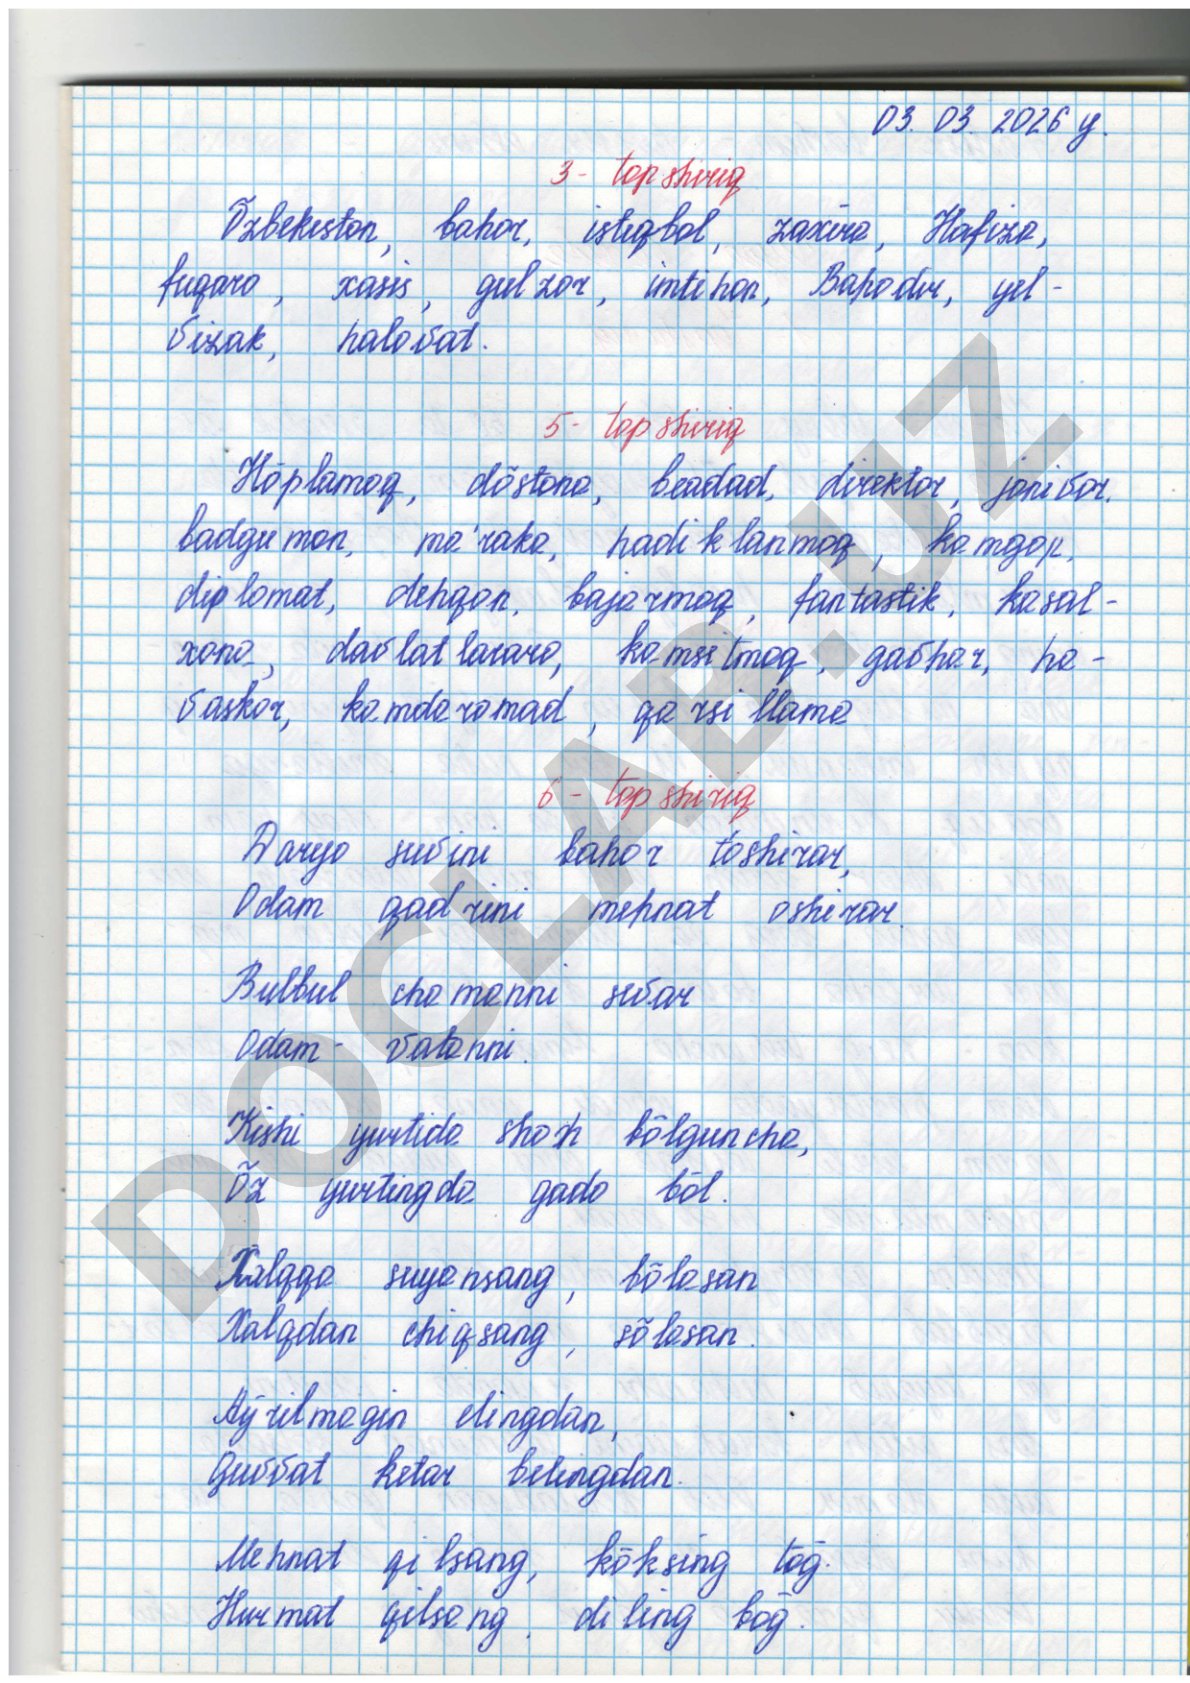 03. 03. 2026 y.
3- topshiriq
Õzbekiston, bahor, istiqbol, zaxira, Hafiza,
fuqaro, xasis, gulzor, imtihon, Bahodir, yel-
vizak, halovat.
5- topshiriq
Hõplamoq, dõstona, beadad, direktor, jonivor,
badgumon, ma'raka, hadiklanmoq, kamgap,
diplomat, dehqon, bajarmoq, fantastik, kasal-
xona, davlatlararo, kamsitmoq, gavhar, ha-
vaskor, kamdaromad, qarsillama
6- topshiriq
Daryo suvini bahor toshirar,
Odam qadrini mehnat oshirar.
Bulbul chamanni sevar
Odam- vatanni.
Kishi yurtida shoh bõlguncha,
Õz yurtingda gado bõl.
Xalqqa suyansang, bõlasan
Xalqdan chiqsang, sõlasan.
Ayrilmagin elingdan,
Quvvat ketar belingdan.
Mehnat qilsang, kõksing toğ.
Hurmat qilsang, diling boğ.
DOCLAB.UZ